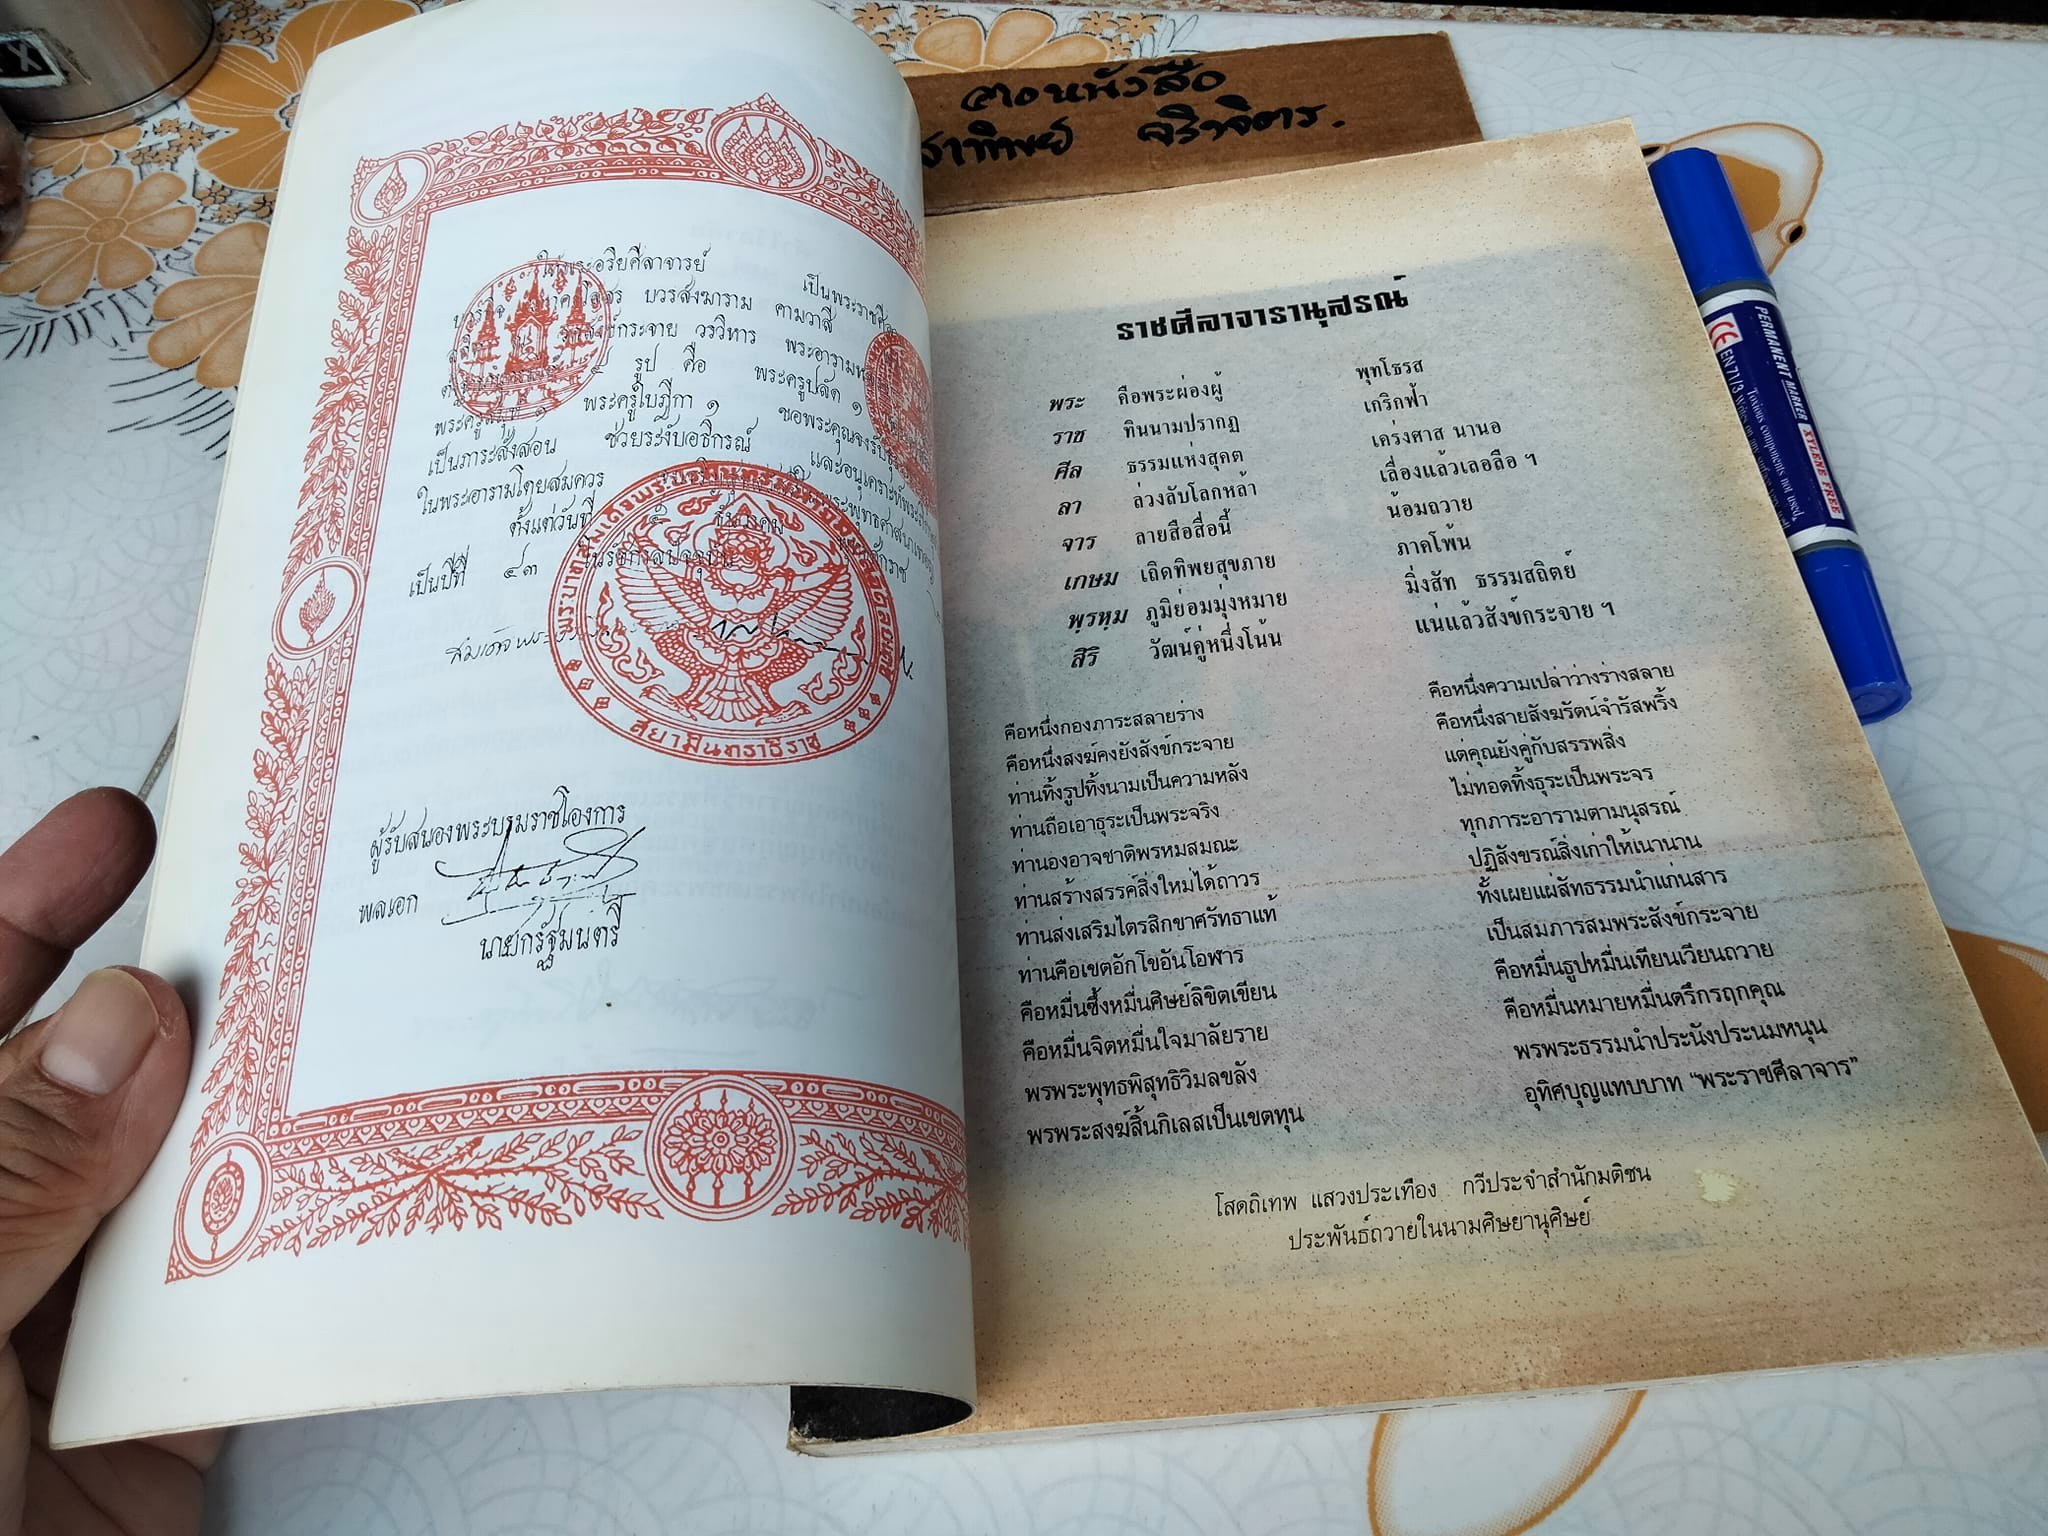 ฅอหนังสือ
สาทิพย์ จริาจิตร.
PERMANENT MARKER XYLENE FREE
CE EN71/3
Toxious components not used.
ให้พระอริยศีลาจารย์ เป็นพระราชศีล
บวรสังฆาราม คามวาสี
สังข์กระจาย วรวิหาร พระอารามหลวง
๔ รูป คือ พระครูปลัด ๑
๑ พระครูใบฎีกา ๑ ขอพระคุณจงรับธุระ
เป็นภาระสั่งสอน ช่วยระงับอธิกรณ์ และอนุเคราะห์พระ
ในพระอารามโดยสมควร
ตั้งแต่วันที่ ๕ ธันวาคม พุทธศักราช
เป็นปีที่ ๔๓ ในรัชกาลปัจจุบัน
สยามินทราธิราช
ผู้รับสนองพระบรมราชโองการ
พลเอก
นายกรัฐมนตรี
ราชศีลาจารานุสรณ์
พระ คือพระผ่องผู้ พุทโธรส
ราช ทินนามปรากฏ เกริกฟ้า
ศีล ธรรมแห่งสุคต เคร่งศาส นานอ
ลา ล่วงลับโลกหล้า เลื่องแล้วเลอลือ ฯ
จาร ลายสือสื่อนี้ น้อมถวาย
เกษม เถิดทิพยสุขภาย ภาคโพ้น
พฺรหฺม ภูมิย่อมมุ่งหมาย มิ่งสัท ธรรมสถิตย์
สิริ วัฒน์คู่หนึ่งโน้น แน่แล้วสังข์กระจาย ฯ
คือหนึ่งกองภาระสลายร่าง คือหนึ่งความเปล่าว่างร่างสลาย
คือหนึ่งสงฆ์คงยังสังข์กระจาย คือหนึ่งสายสังฆรัตน์จำรัสพริ้ง
ท่านทิ้งรูปทิ้งนามเป็นความหลัง แต่คุณยังคู่กับสรรพสิ่ง
ท่านถือเอาธุระเป็นพระจริง ไม่ทอดทิ้งธุระเป็นพระจร
ท่านองอาจชาติพรหมสมณะ ทุกภาระอารามตามนุสรณ์
ท่านสร้างสรรค์สิ่งใหม่ได้ถาวร ปฏิสังขรณ์สิ่งเก่าให้เนานาน
ท่านส่งเสริมไตรสิกขาศรัทธาแท้ ทั้งเผยแผ่สัทธรรมนำแก่นสาร
ท่านคือเขตอักโขอันโอฬาร เป็นสมภารสมพระสังข์กระจาย
คือหมื่นซึ้งหมื่นศิษย์ลิขิตเขียน คือหมื่นธูปหมื่นเทียนเวียนถวาย
คือหมื่นจิตหมื่นใจมาลัยราย คือหมื่นหมายหมื่นตรึกรฤกคุณ
พรพระพุทธพิสุทธิวิมลขลัง พรพระธรรมนำประนังประนมหนุน
พรพระสงฆ์สิ้นกิเลสเป็นเขตทุน อุทิศบุญแทบบาท “พระราชศีลาจาร”
โสดถิเทพ แสวงประเทือง กวีประจำสำนักมติชน
ประพันธ์ถวายในนามศิษยานุศิษย์